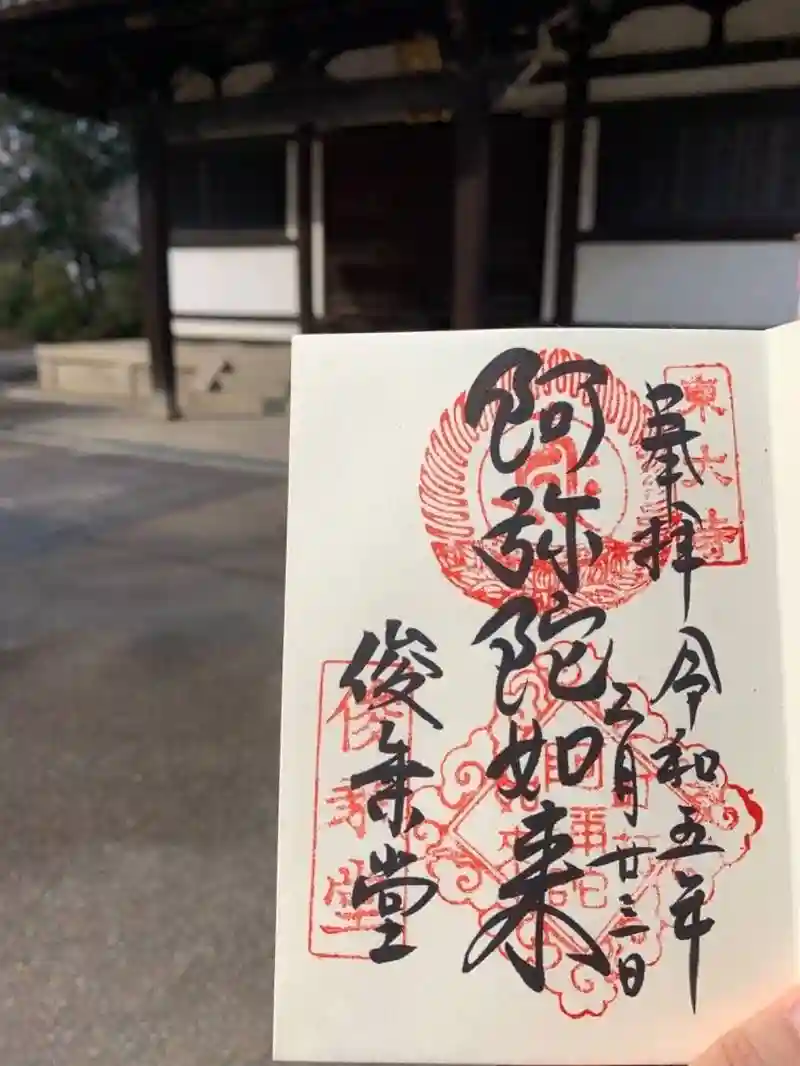 東大寺
奉拝
令和五年
三月廿三日
阿弥陀如来
俊乗堂
俊乗堂